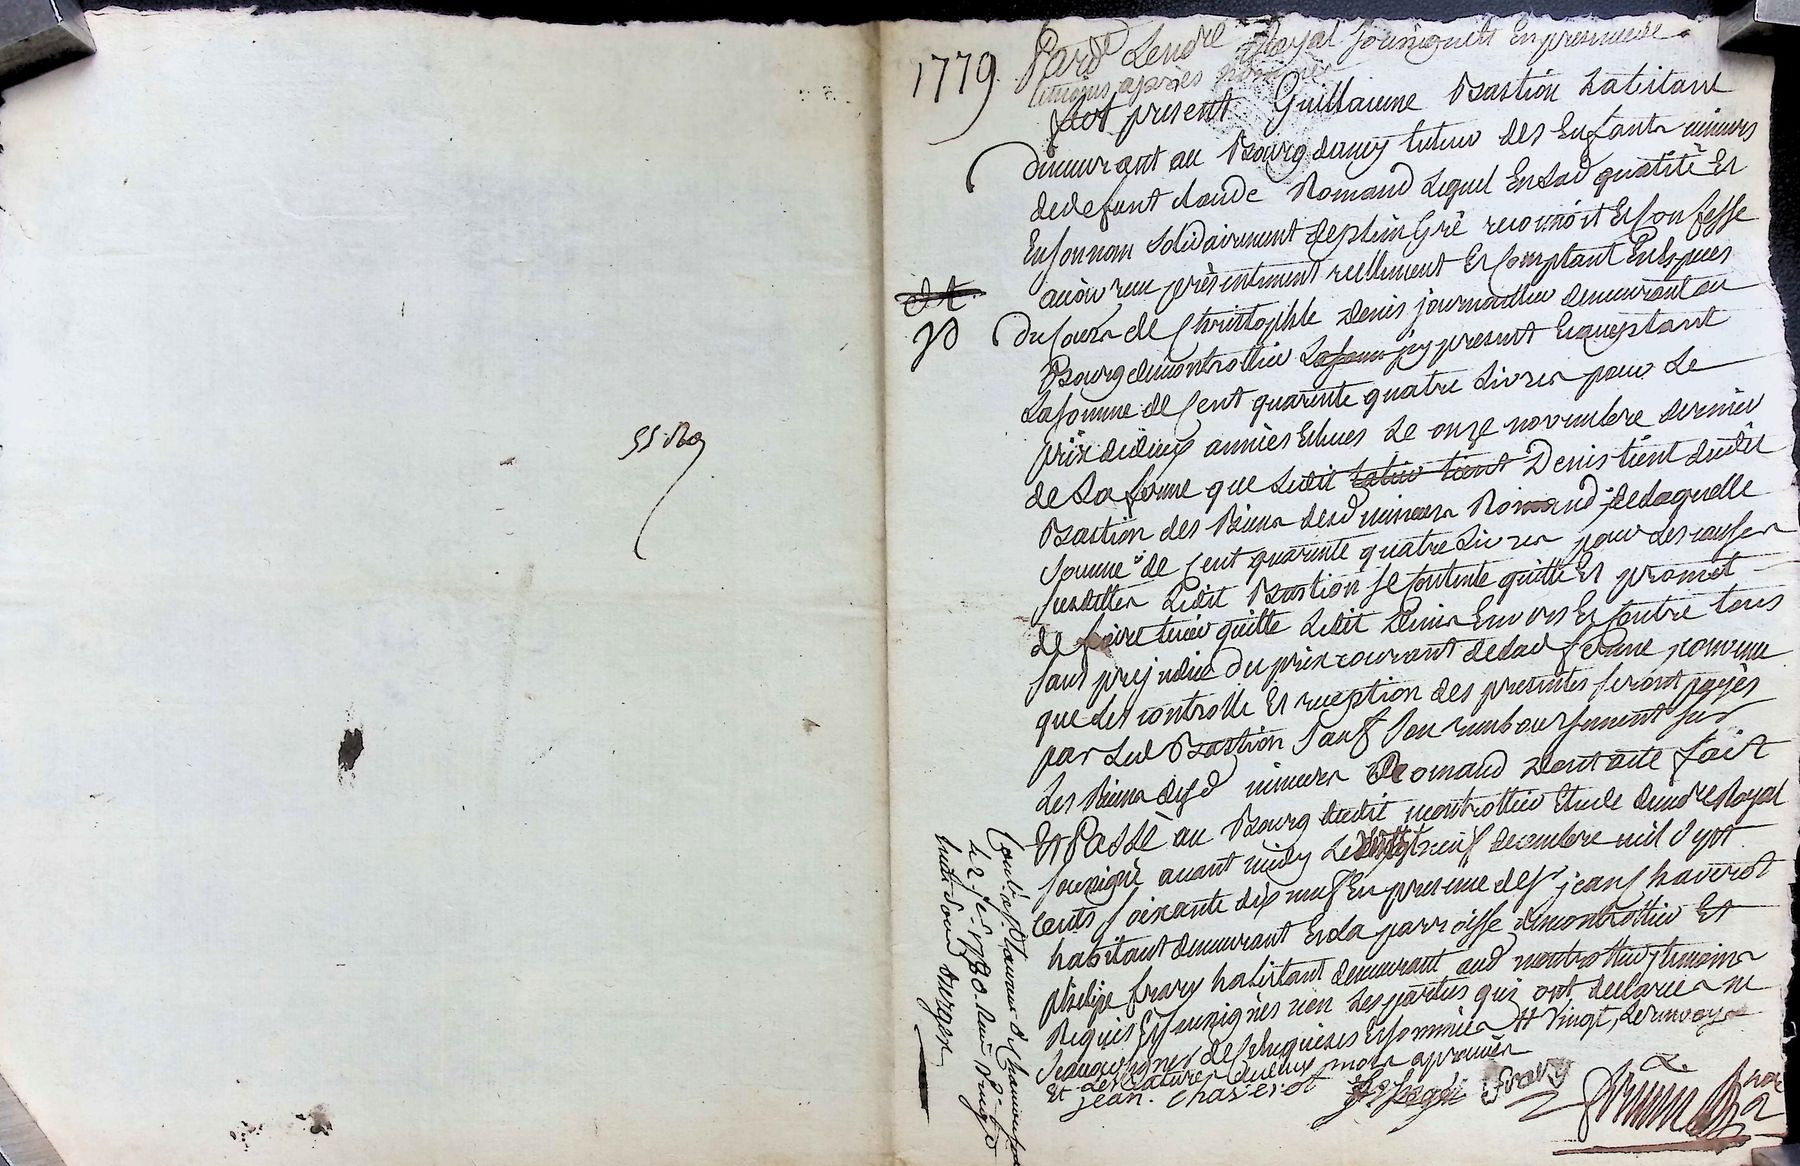 1779
Pard. Lenore Royal Soussigné En presence de
temoins apres nommés
fut present Guillaume Bastion habitant
demeurant au Bourg dancy tuteur des Enfants mineurs
de defunt claude Romand Lequel En sad qualité Et
En son nom solidairement de plein Gré reconnoit Et Confesse
avoir reçu présentement reellement Et Comptant En Espèces
du Cours de Christophle Denis journaillier demeurant au
Bourg de montrottier Lasomme jcy present Et acceptant
La somme de Cent quarente quatre Livres pour Le
prix dedeux années Echues Le onze novembre dernier
de La ferme que Ledit tuteur tient Denis tient dudit
Bastion des Biens desd mineurs Romand, de laquelle
somme de Cent quarente quatre Livres pour Les causes
susdittes Ledit Bastion se Contente quitte Et promet
de faire tenir quitte Ledit Denis Envers Et Contre tous
sans prejudice du prix courant de lad ferme, convenu
que Les controlle Et reception des presentes seront payés
par Led Bastion sauf son remboursement sur
Les Biens desd mineurs Romand Dont acte fait
Et Passé au Bourg dudit montrottier Etude dunore Royal
soussigné avant midy Le vingt neuf decembre mil Sept
cents soixante dix neuf En presence de sr jean Chaverot
habitant demeurant En La parroisse de montrottier Et
phelipe frary habitant demeurant aud montrottier, temoins
Requis Et soussignés non Les parties qui ont declaré ne
Scavoir signer de Ce Enquises Et sommées # vingt, Le renvoy
Et Les ratures deux mots aprouvés
jean. chaverot frary
Controllé à St Laurent de Chamousset
Le 2 Je. 1780. Reçu vingt
huit sous Berger